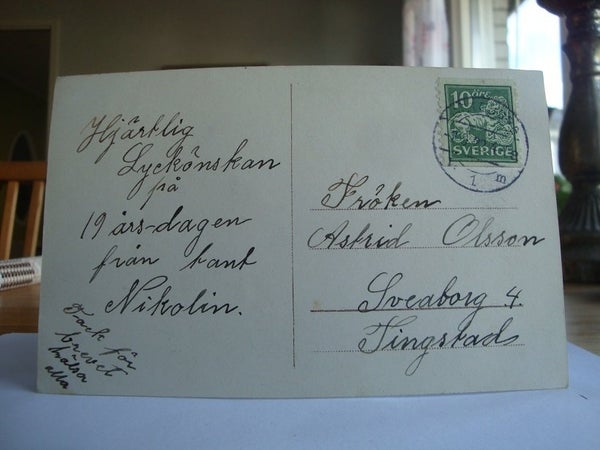 Hjärtlig
Lyckönskan
på
19 års-dagen
från tant
Nikolin.
Tack för
brevet
hälsa
alla
10 öre
SVERIGE
1 m
Fröken
Astrid Olsson
Sveaborg 4.
Tingstad